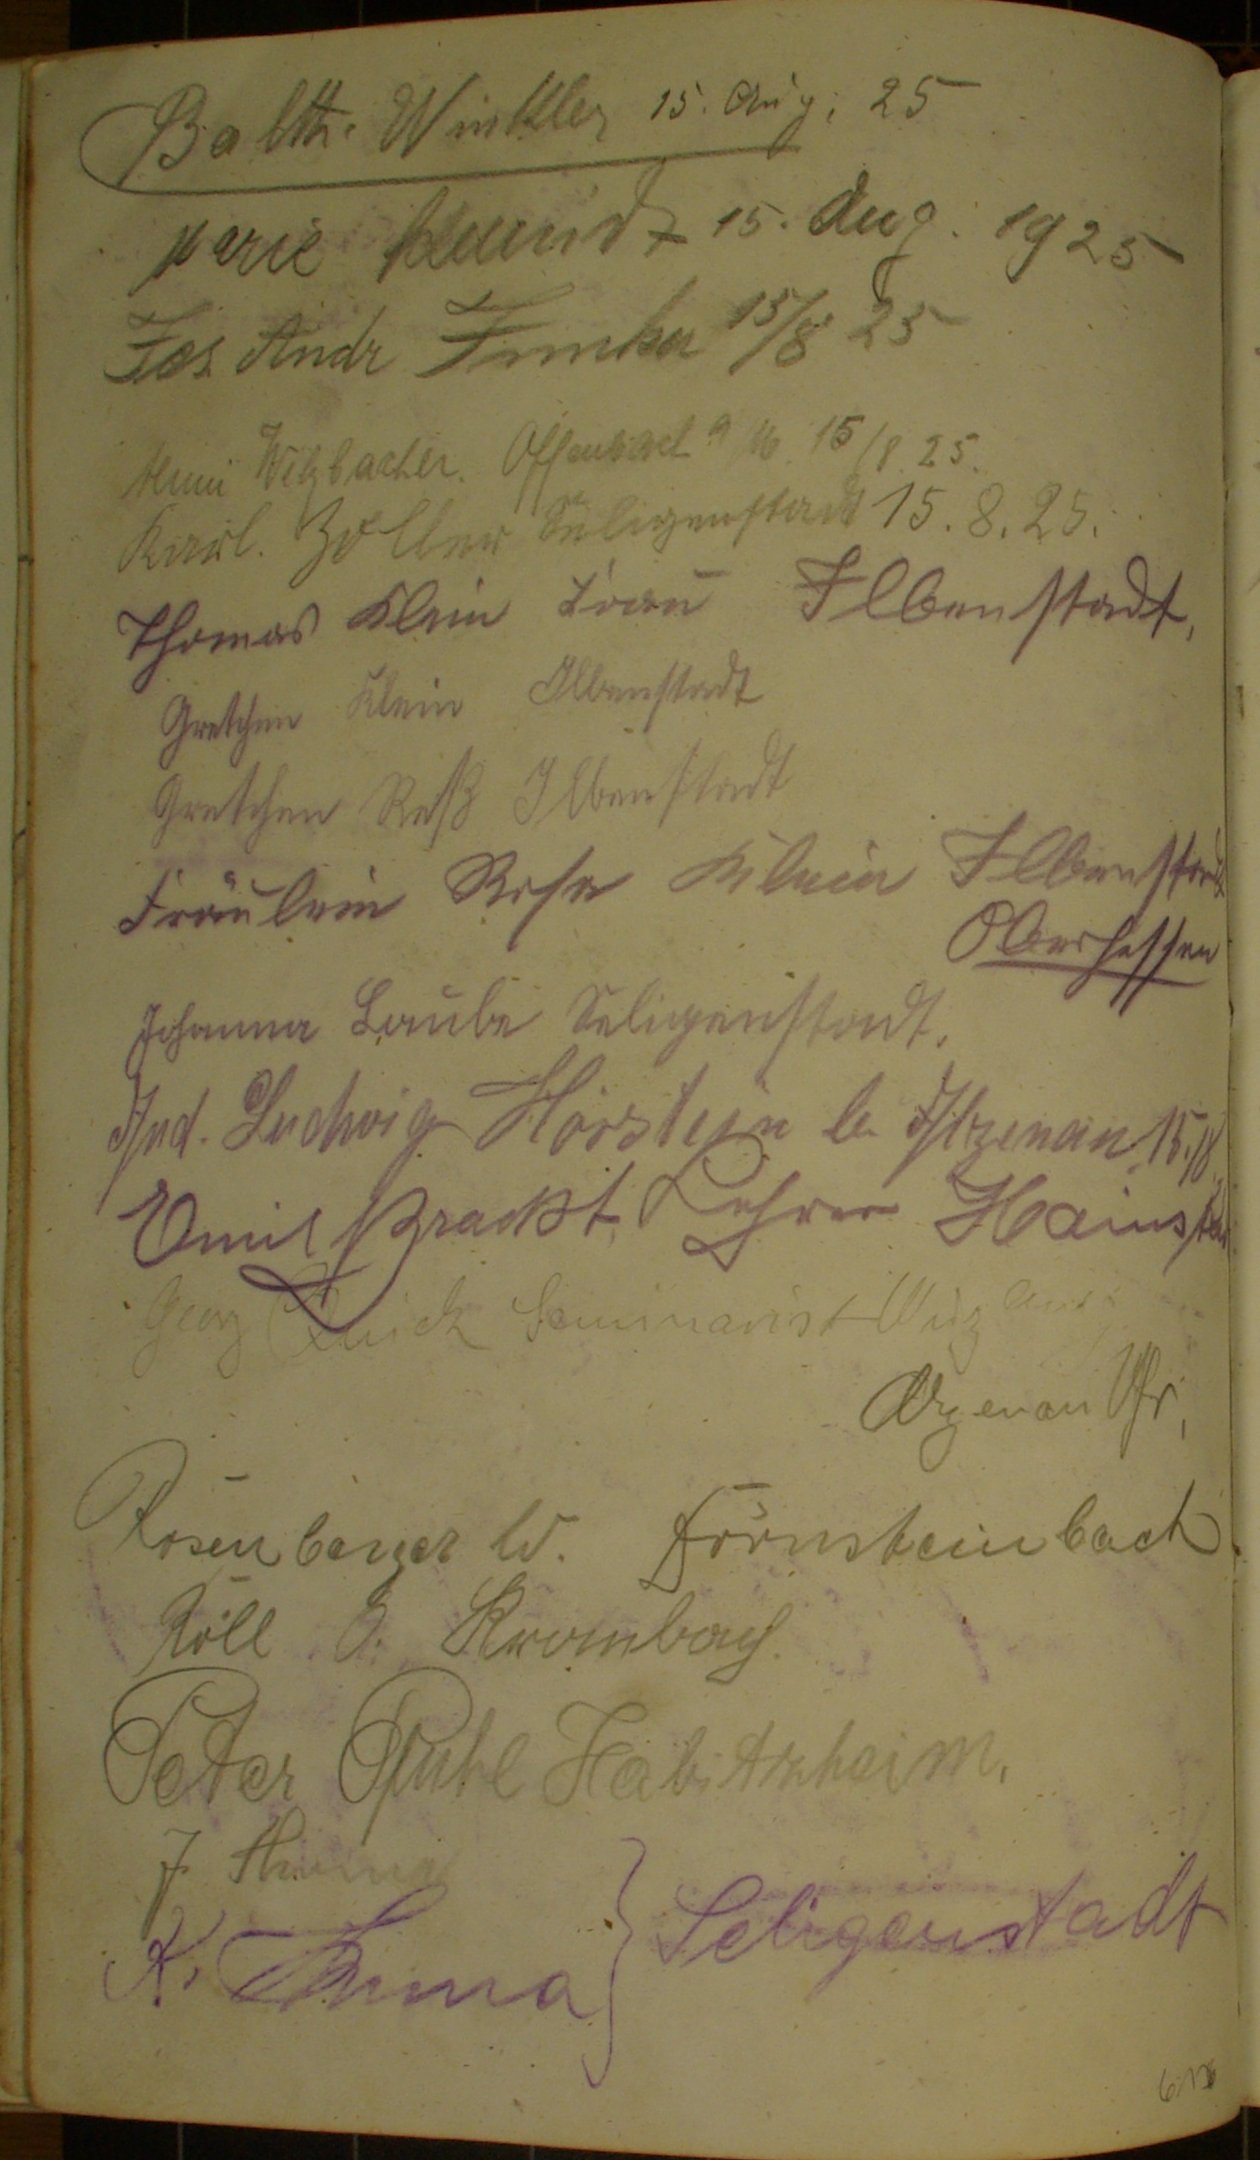 Balth. Winkler 15. Aug. 25
Marie 15. Aug. 1925
Jos. Andr 15/8 25
Welzbacher. Offenbach a/M. 15/8. 25.
Karl. Zöller Seligenstadt 15. 8. 25.
Thomas Klein Frau Ilbenstadt,
Gretchen Klein Ilbenstadt
Gretchen Reß Ilbenstadt
Fräulein Rosa Klein Ilbenstadt
Oberhessen
Johanna Laube Seligenstadt.
Ludwig Hörstein b. Alzenau 15./8.
Emil Lehrer Hainstadt
Georg Seminarist
Alzenau Ufr.
Rosenberger W. Hörnsteinbach
Röll Krombach.
Peter Habitzheim.
J. Thuma
K. Thuma } Seligenstadt